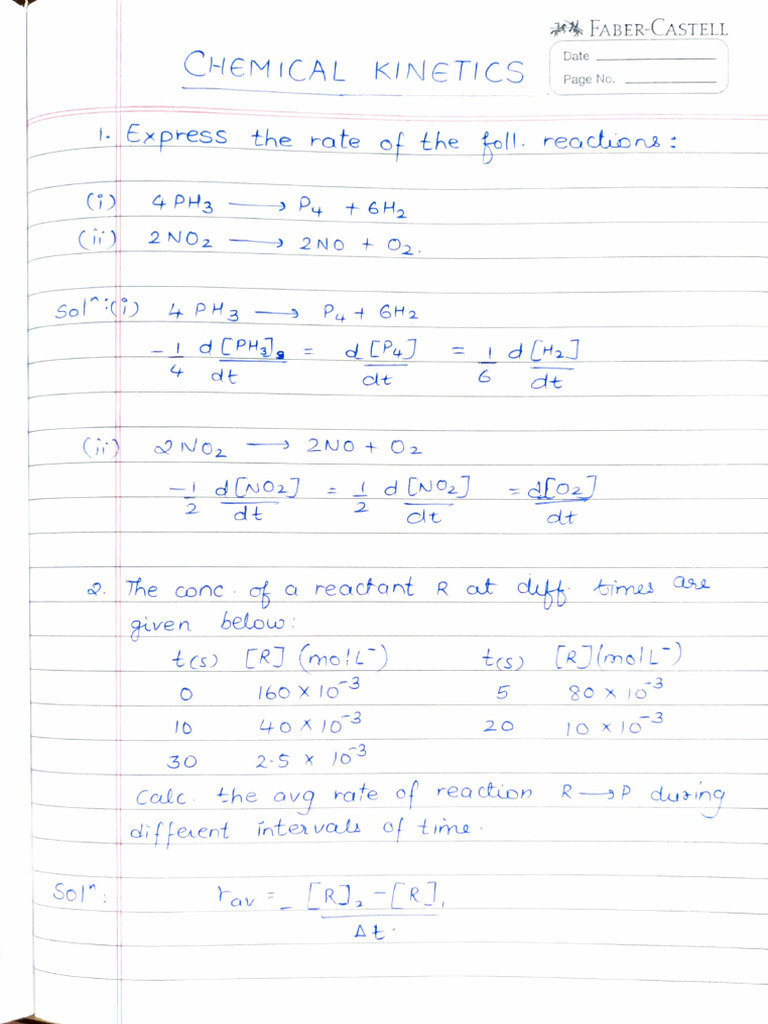 FABER-CASTELL
Date
Page No.
CHEMICAL KINETICS
1. Express the rate of the foll. reactions:
(i) 4PH₃ ⟶ P₄ + 6H₂
(ii) 2NO₂ ⟶ 2NO + O₂.
Solⁿ:(i) 4PH₃ ⟶ P₄ + 6H₂
-1/4 d[PH₃]/dt = d[P₄]/dt = 1/6 d[H₂]/dt
(ii) 2NO₂ ⟶ 2NO + O₂
-1/2 d[NO₂]/dt = 1/2 d[NO₂]/dt = d[O₂]/dt
2. The conc. of a reactant R at diff. times are
given below:
t(s) [R] (mol L⁻) t(s) [R] (mol L⁻)
0 160 × 10⁻³ 5 80 × 10⁻³
10 40 × 10⁻³ 20 10 × 10⁻³
30 2.5 × 10⁻³
Calc. the avg rate of reaction R ⟶ P during
different intervals of time.
Solⁿ: rav = - [R]₂ - [R]₁ / Δt.